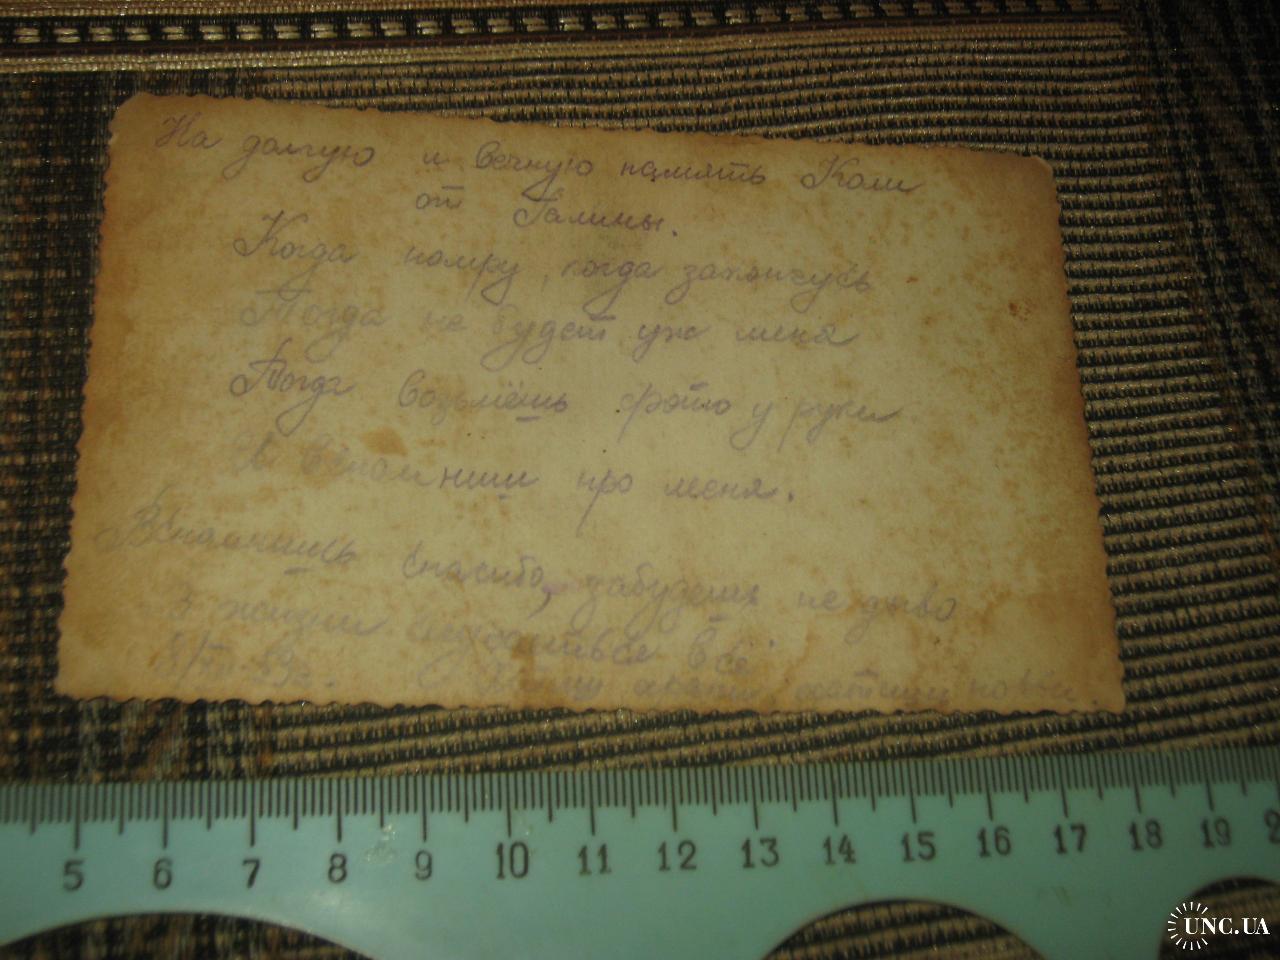 На долгую и вечную память Коли
от Галины.
Когда помру, когда закончусь
Тогда не будет уж меня
Тогда возьмёшь фото у руки
И вспомниш про меня.
Вспомнишь спасибо, забудешь не дыво
В жизни случаться всё
5 6 7 8 9 10 11 12 13 14 15 16 17 18 19
UNC.UA